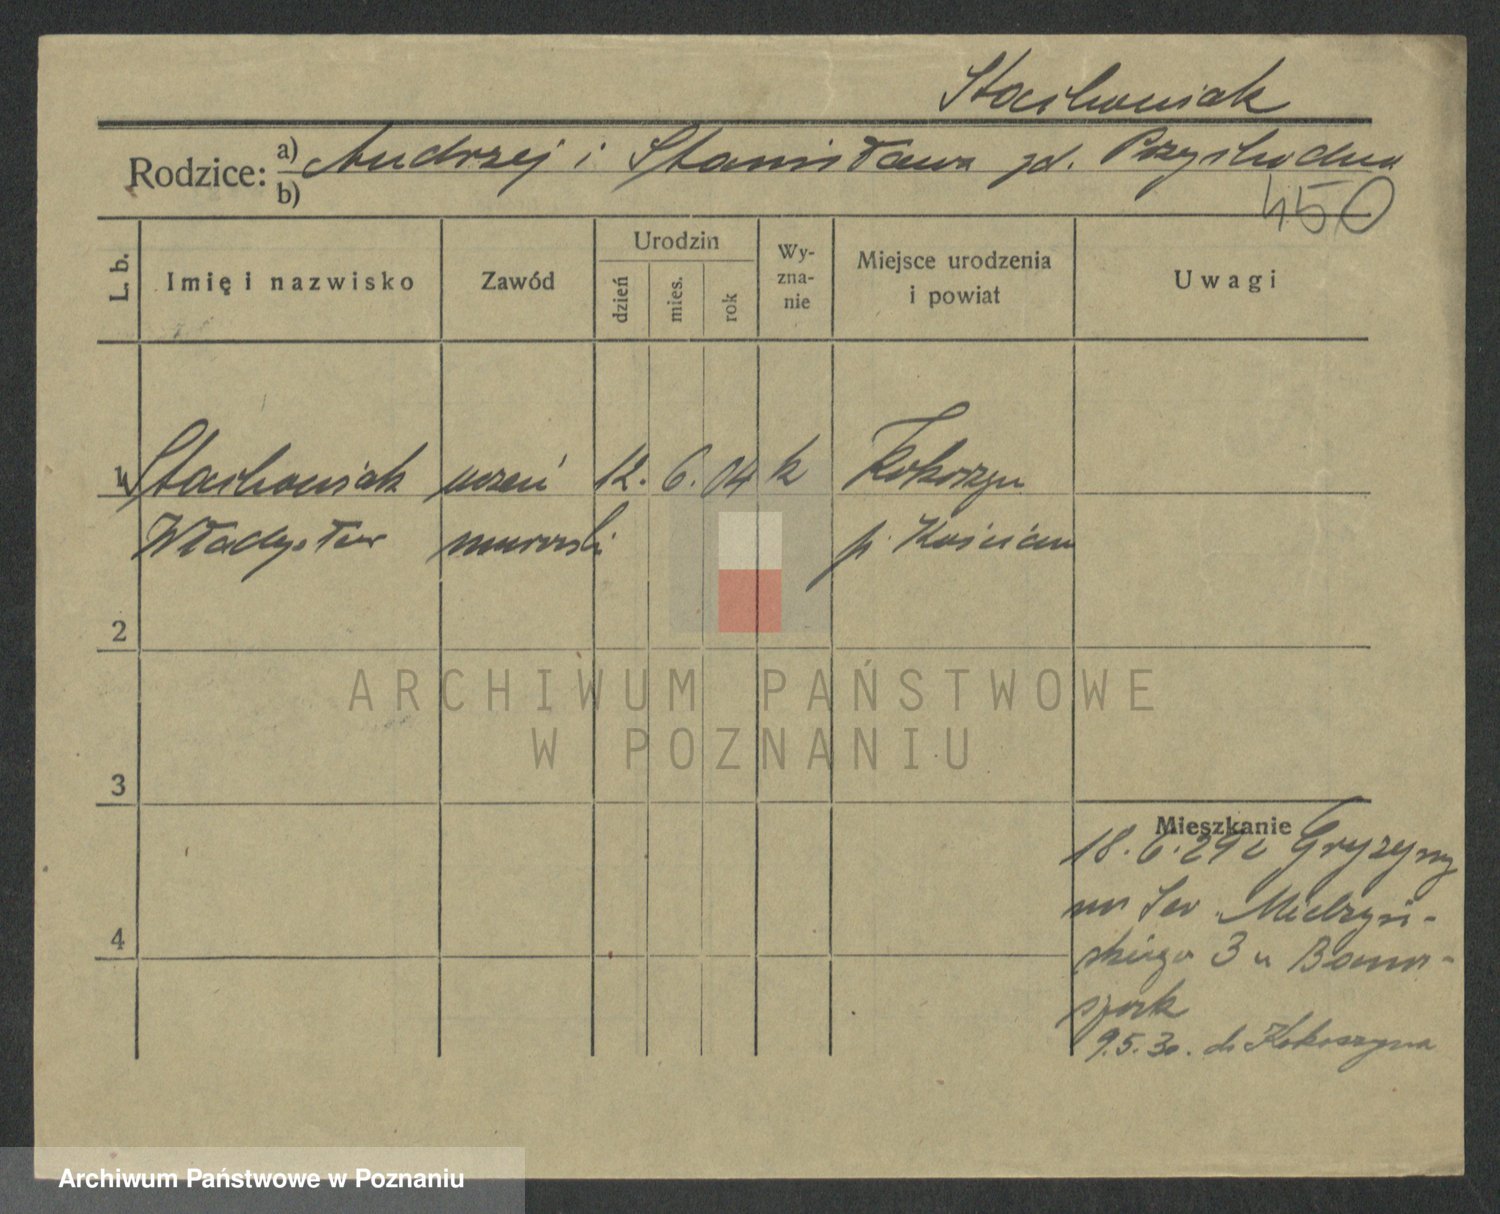 Stachowiak
Rodzice: a) Andrzej i Stanisława zd. Przychodna
b)
450
L. b. Imię i nazwisko Zawód Urodzin dzień mies. rok Wy-zna-nie Miejsce urodzenia i powiat Uwagi
1 Stachowiak uczeń 12. 6. 04 k Kokorzyn
Władysław murarski p. Kościan
2
ARCHIWUM PAŃSTWOWE
W POZNANIU
3
Mieszkanie
18.6.29 z Gryzyny
na Sew. Mielżyń-
skiego 3 u
9.5.30. do Kokorzyna
4
Archiwum Państwowe w Poznaniu